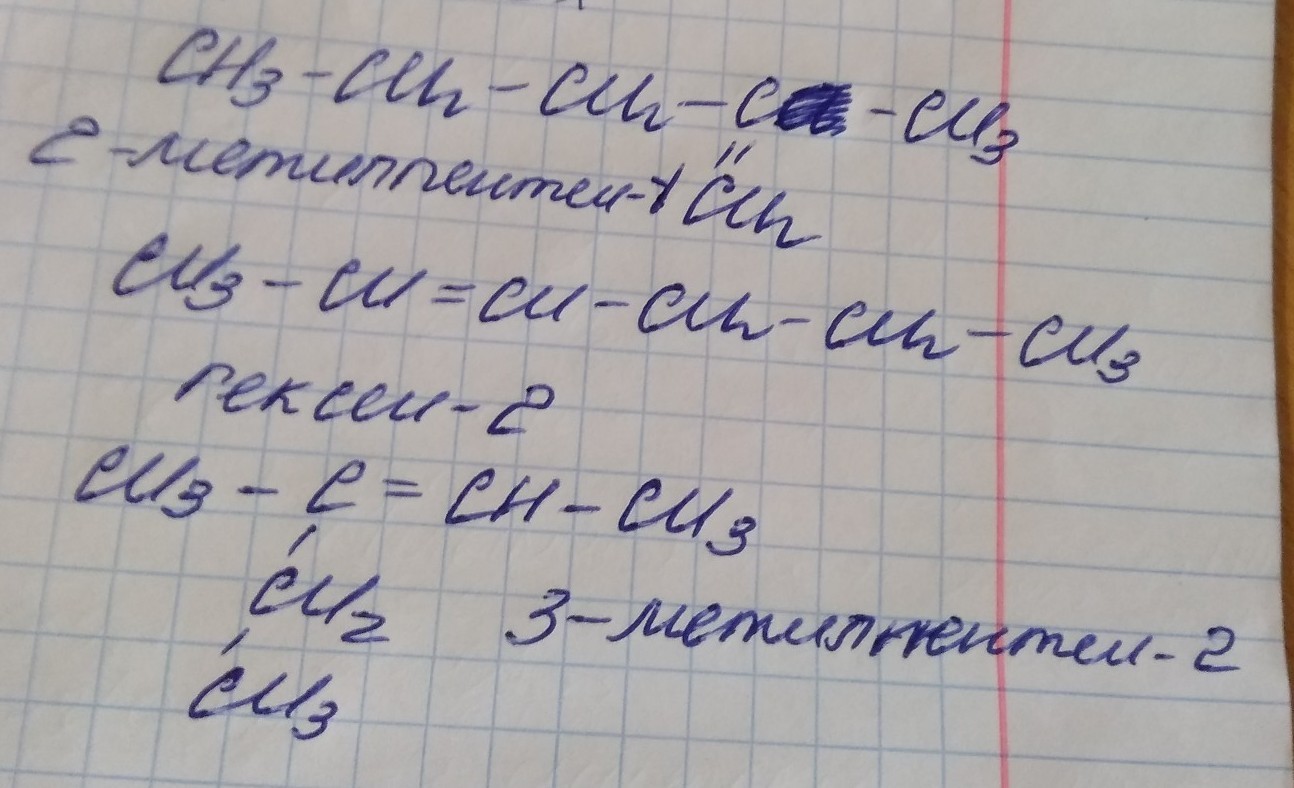 CH3 - CH2 - CH2 - C - CH3
"
2-метилпентен-1 CH2
CH3 - CH = CH - CH2 - CH2 - CH3
гексен-2
CH3 - C = CH - CH3
CH2 3-метилпентен-2
CH3